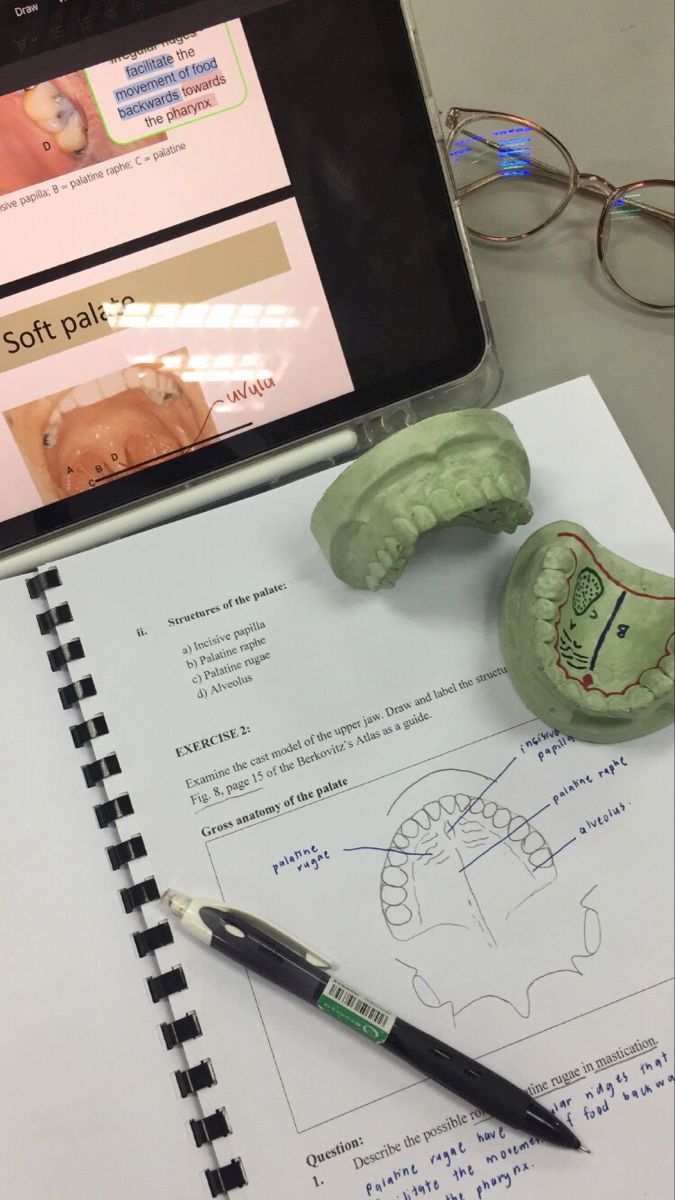 Draw
irregular ridges
facilitate the
movement of food
backwards towards
the pharynx
D
papilla; B = palatine raphe; C = palatine
Soft palate
uvula
A B D
C
ii. Structures of the palate:
a) Incisive papilla
b) Palatine raphe
c) Palatine rugae
d) Alveolus
B
EXERCISE 2:
Examine the cast model of the upper jaw. Draw and label the
Fig. 8, page 15 of the Berkovitz's Atlas as a guide.
Gross anatomy of the palate
incisive
papilla
palatine raphe
alveolus.
palatine
rugae
Question:
1. Describe the possible rugae in mastication.
Palatine rugae have ridges that
the food
the pharynx.